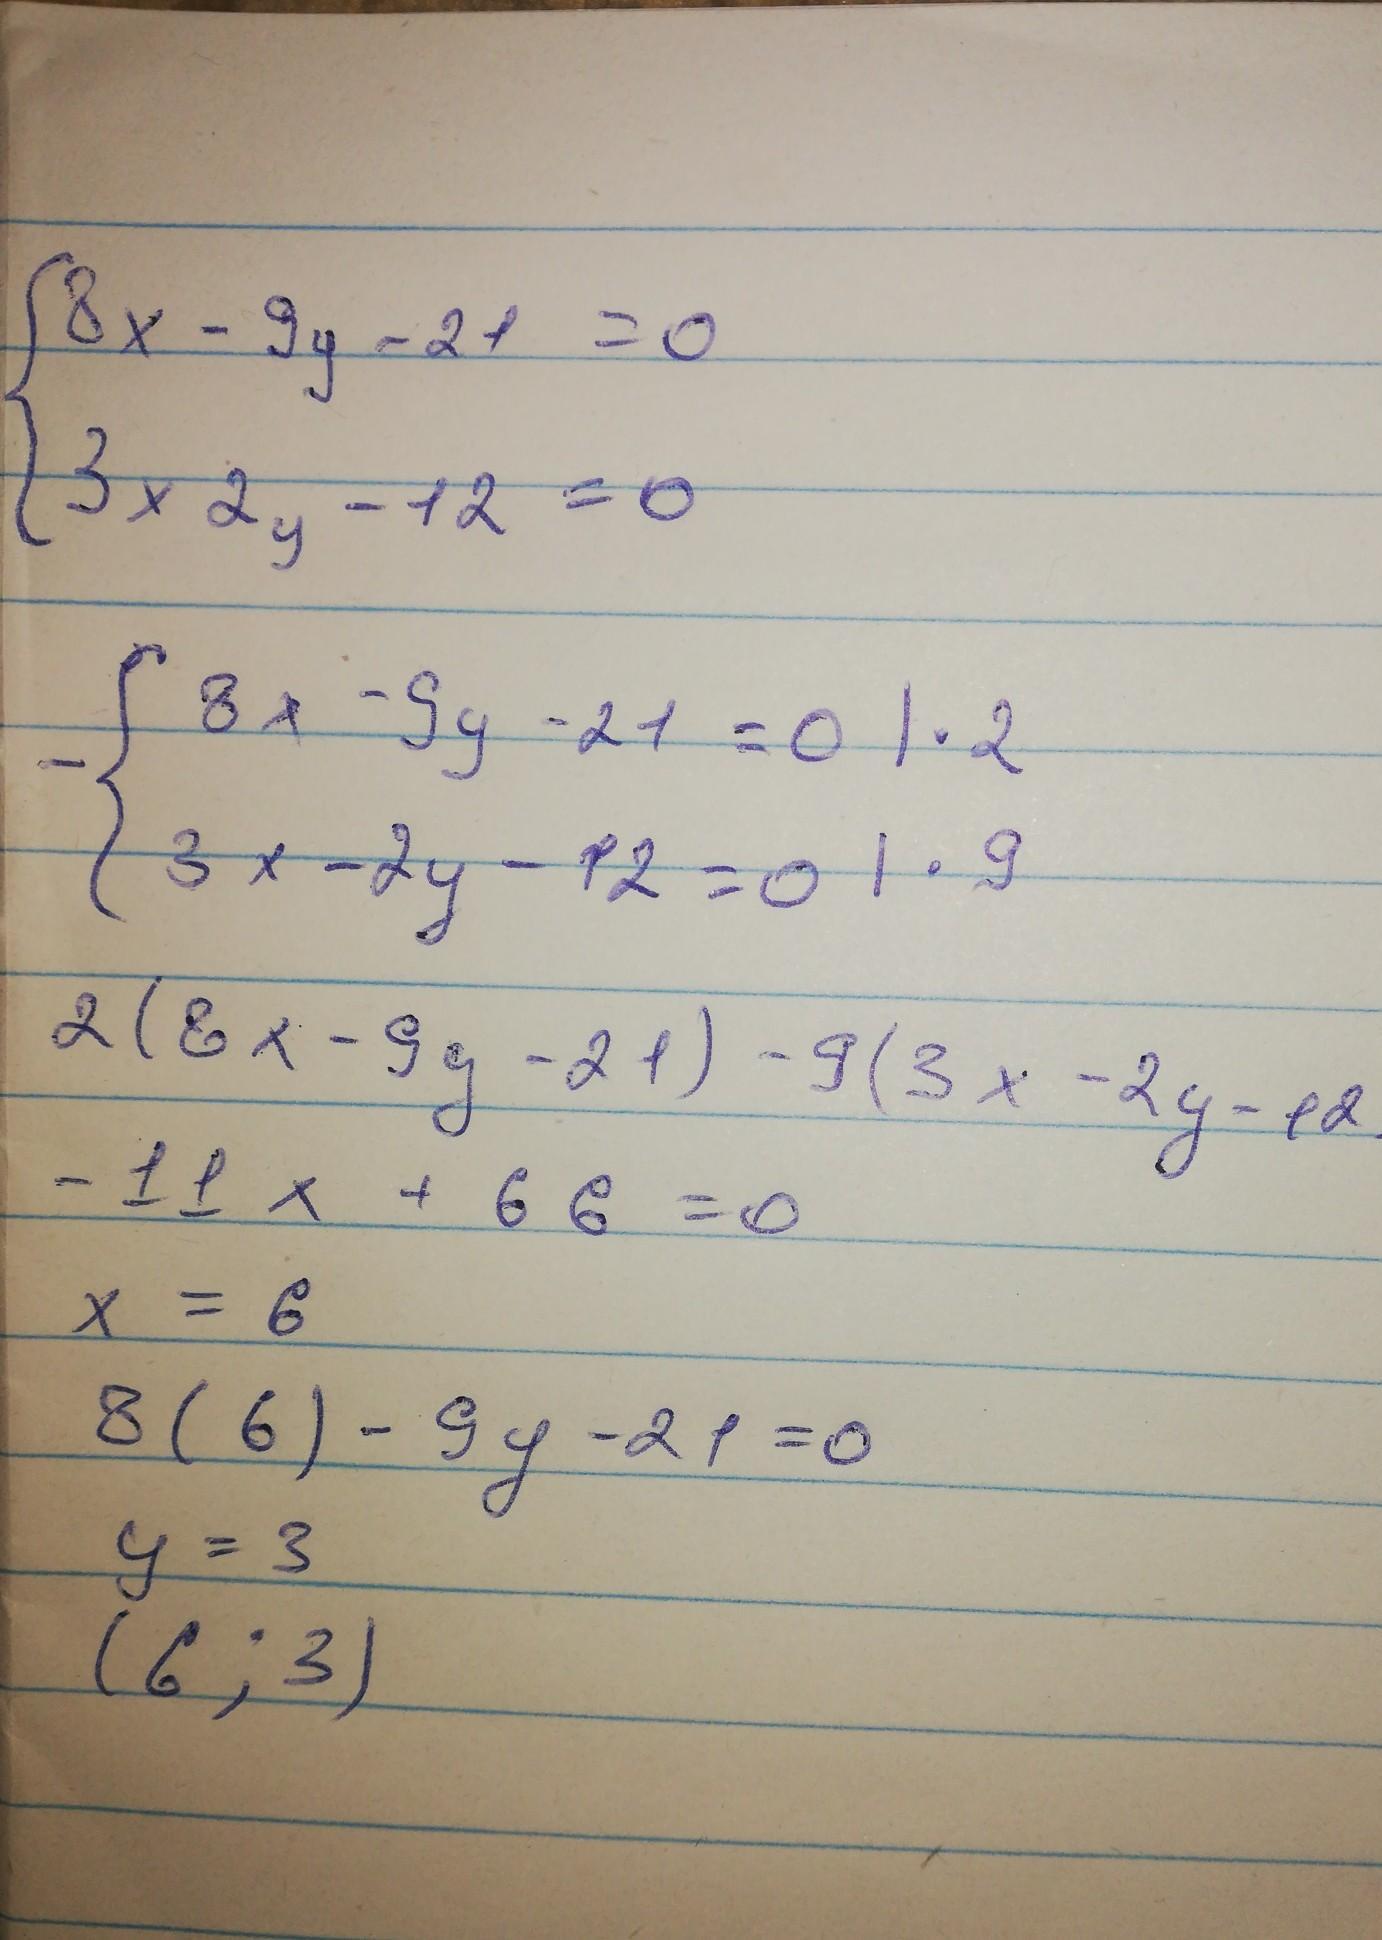 8x - 9y - 21 = 0
3x 2y - 12 = 0
- 8x - 9y - 21 = 0 | · 2
3x - 2y - 12 = 0 | · 9
2(8x - 9y - 21) - 9(3x - 2y - 12
- 11x + 66 = 0
x = 6
8(6) - 9y - 21 = 0
y = 3
(6 ; 3)